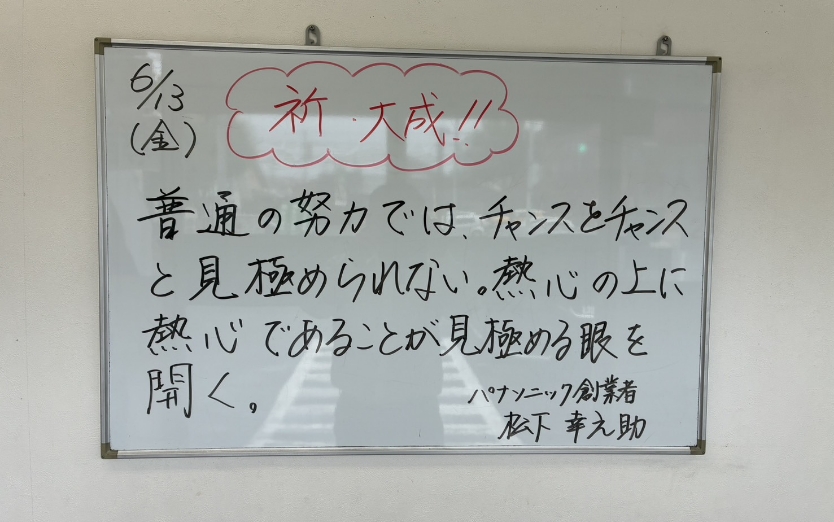 6/13
(金)
祈・大成!!
普通の努力では、チャンスをチャンス
と見極められない。熱心の上に
熱心であることが見極める眼を
開く。
パナソニック創業者
松下 幸之助